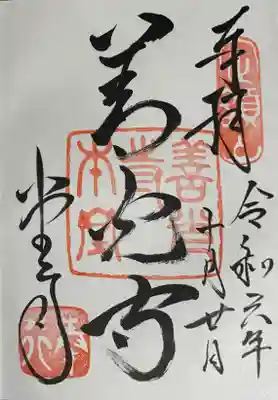 奉拝
令和六年
十月廿日
善光寺
善光寺本堂